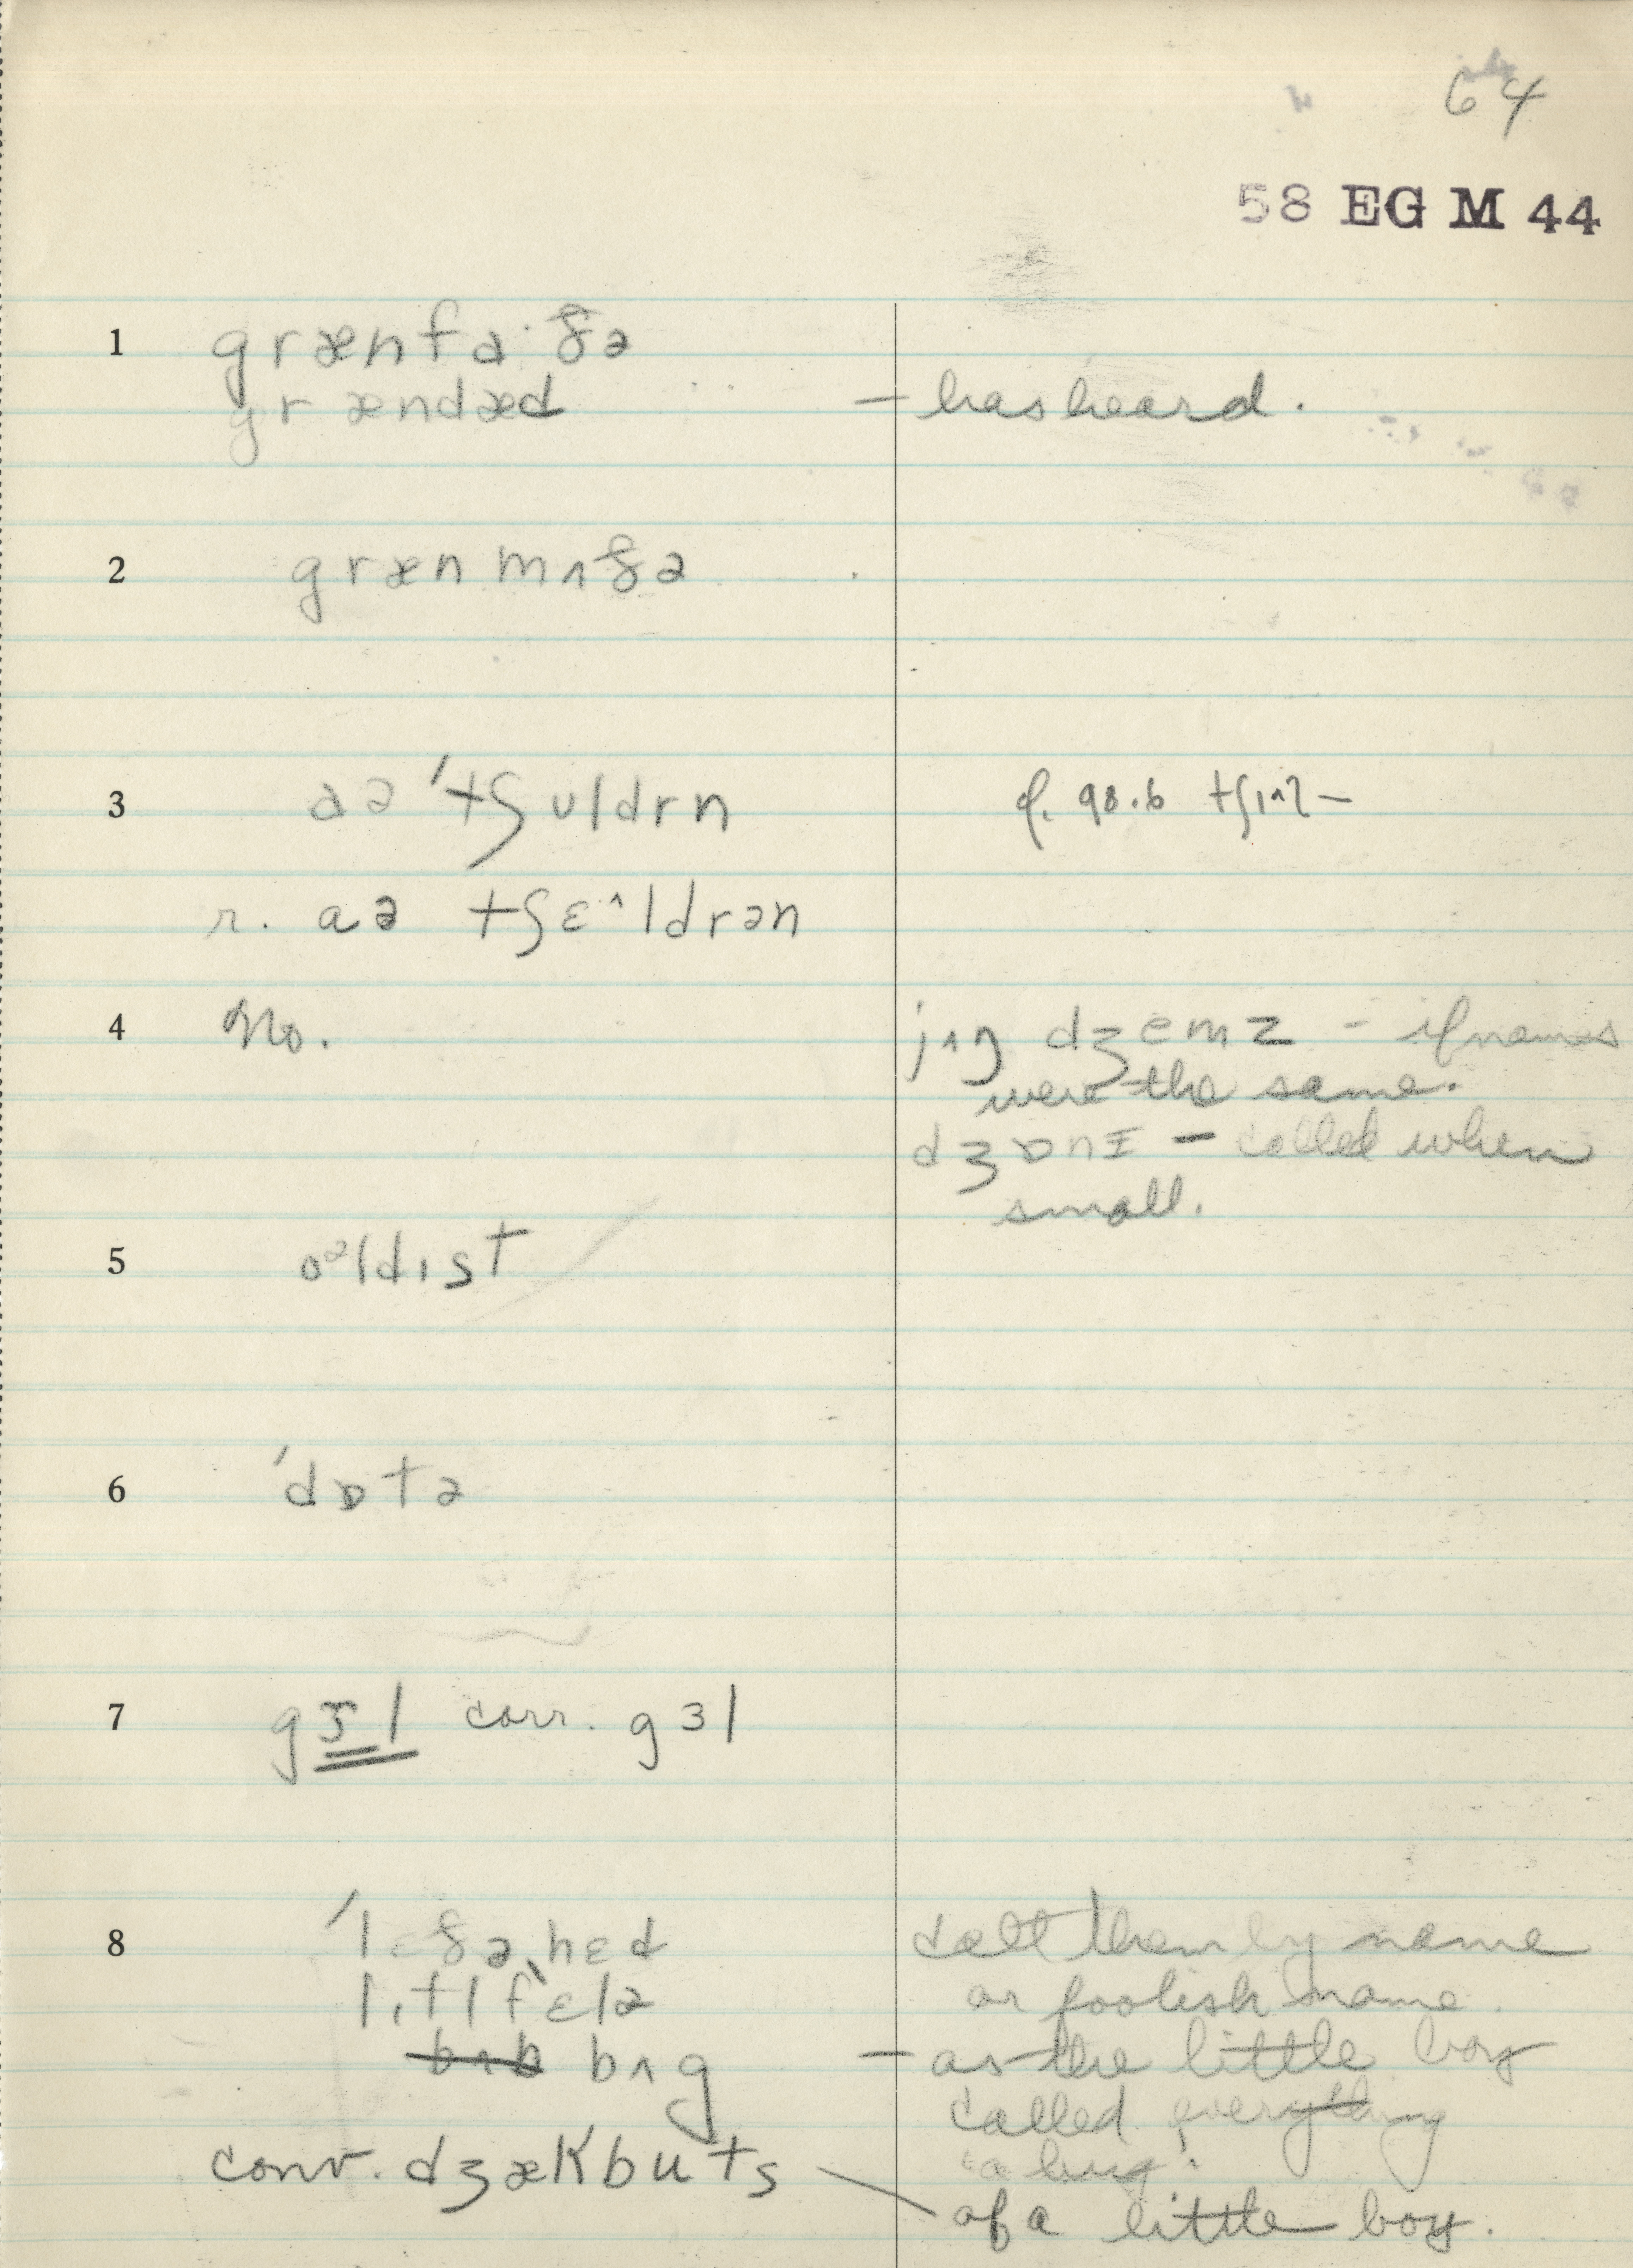 64
58 EG M 44
1 grænfa·ðə
grændæd – has heard.
2 græn mʌðə
3 aə 'tʃʊldrn cf. 98.6 tʃɪˆl–
r. aə tʃɛ^ldrən
4 No. jʌŋ dʒemz – if names
were the same.
dʒɒnɪ – called when
small.
5 oᵊldɪst
6 'dɒtə
7 gɝl corr. gɜl
8 'lɛðə,hɛd call them by name
lɪtl fɛlə or foolish name.
bʌb bʌg – as the little boy
called everything
"a bug".
conv. dʒækbuts – of a little boy.